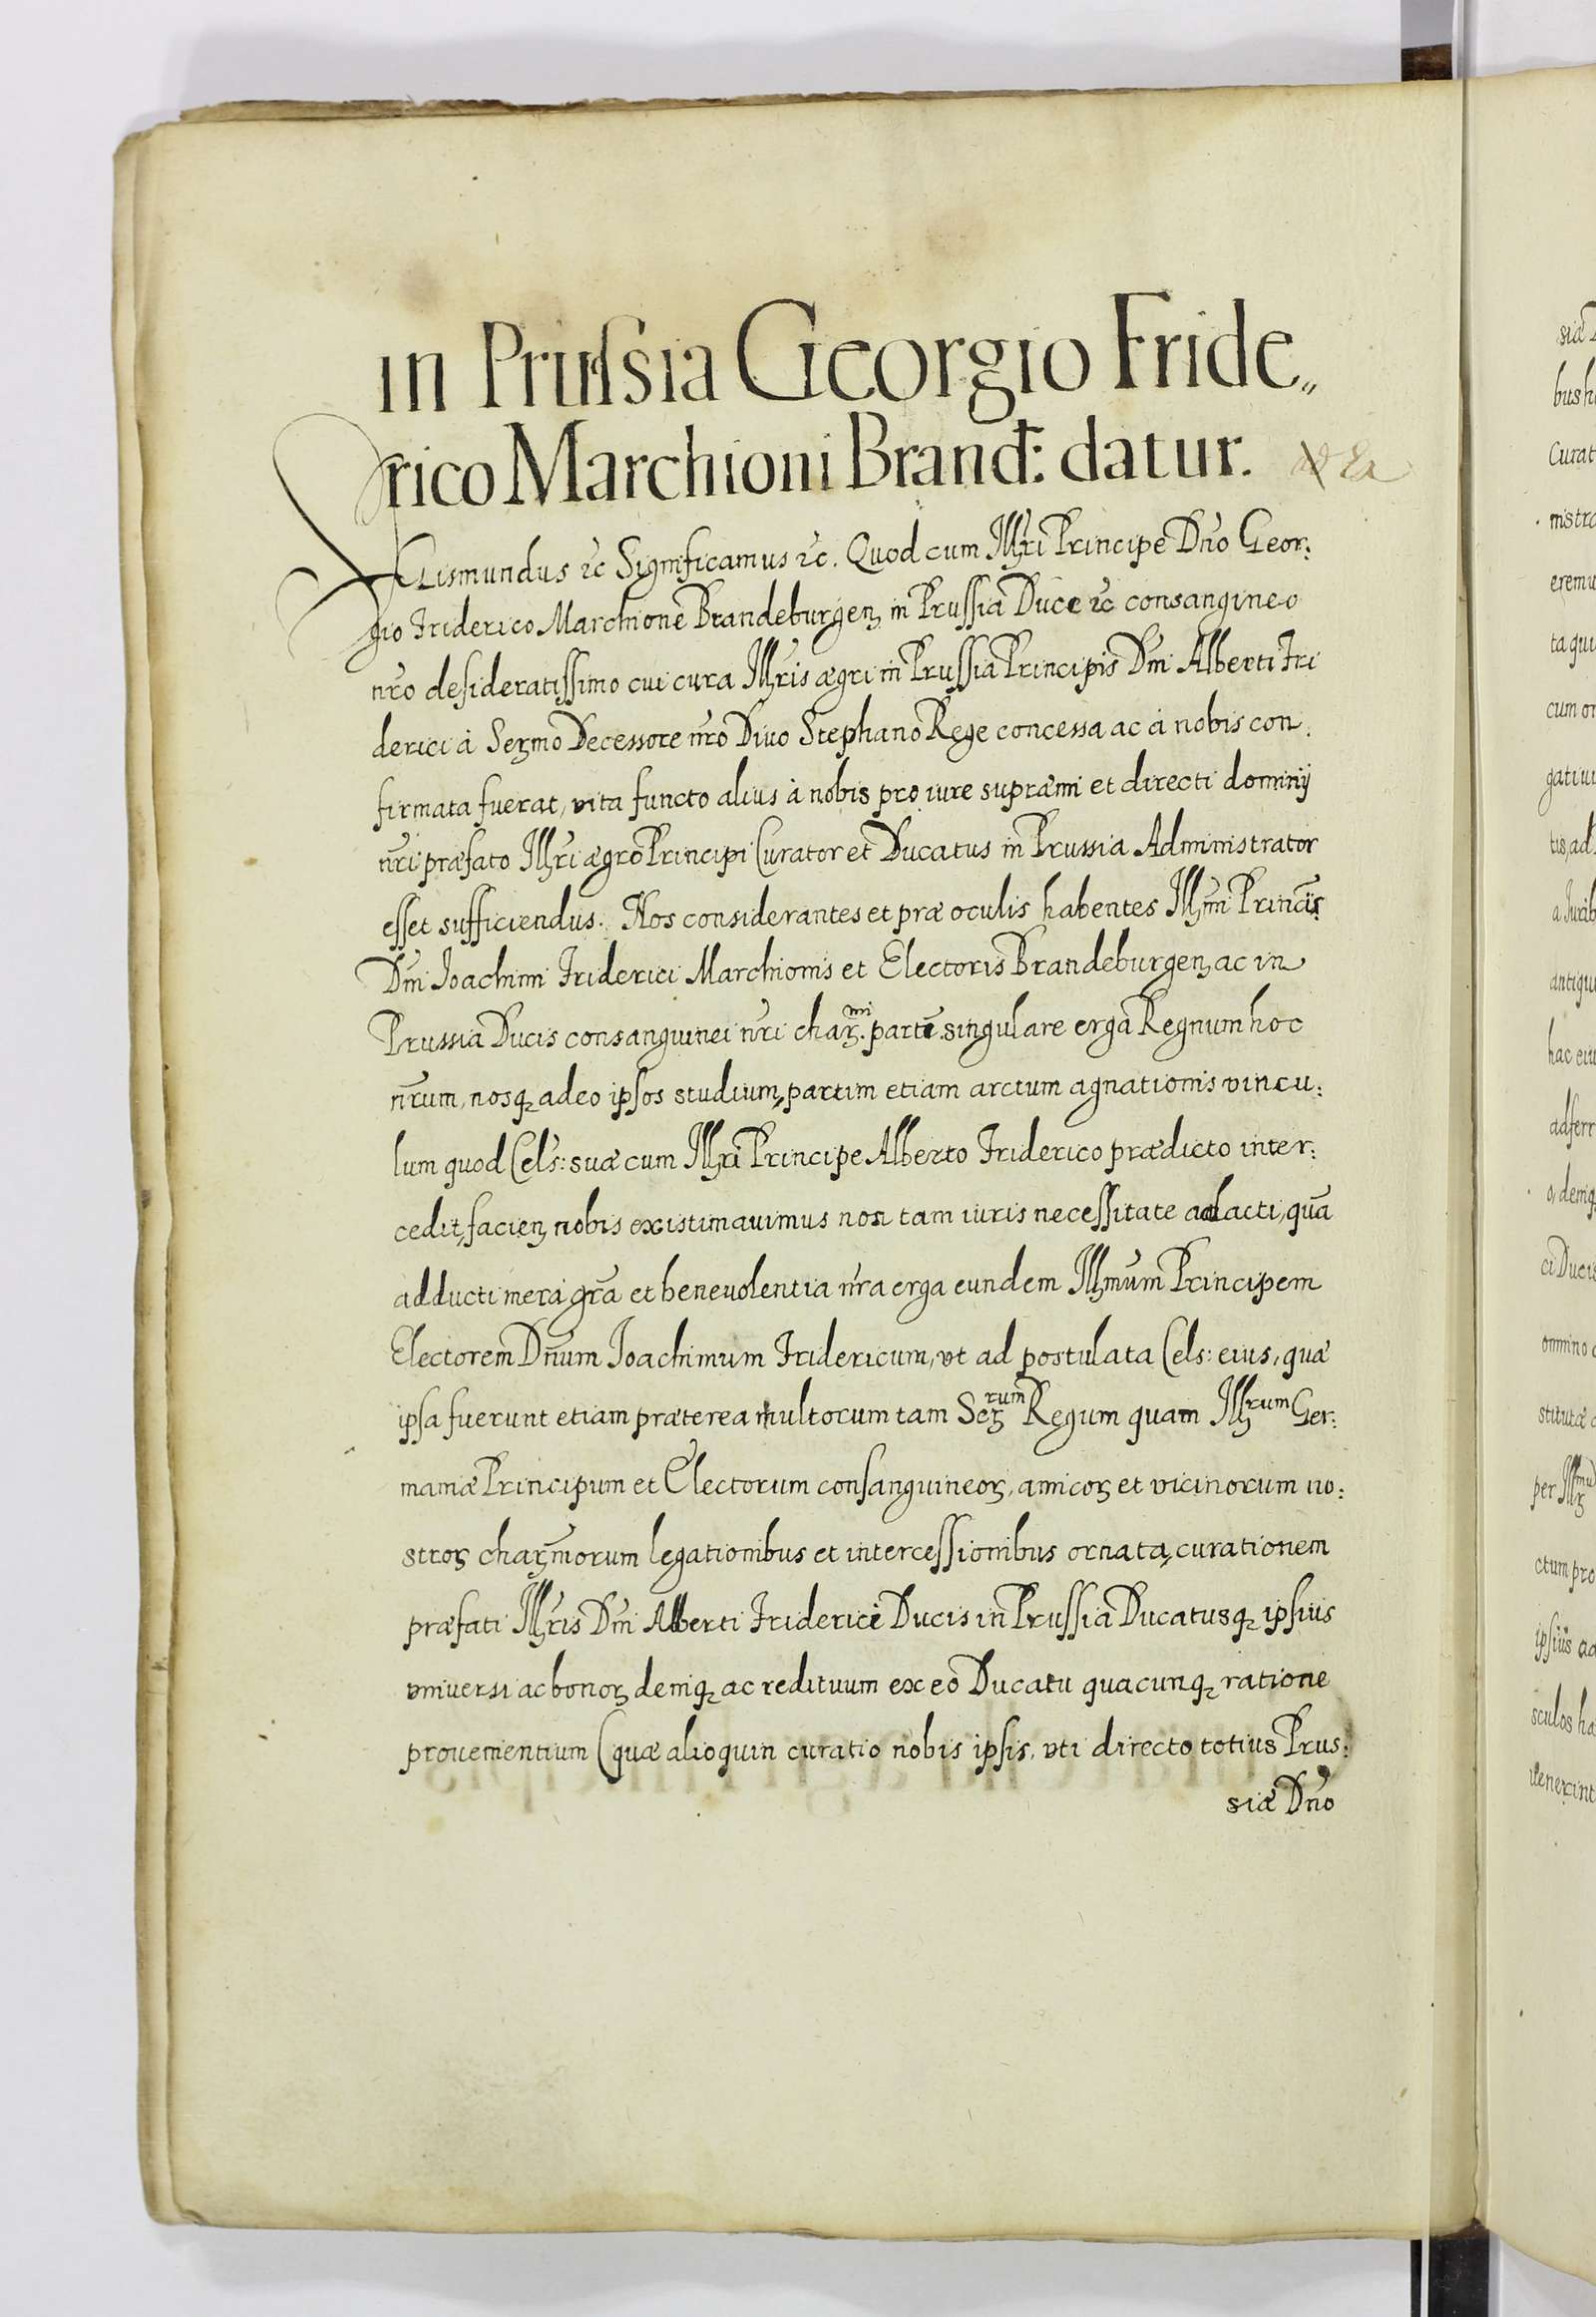 in Prussia Georgio Fride„
rico Marchioni Brand: datur.
Sigismundus ꝛc Significamus ꝛc. Quod cum Illꝫri Principe Dño Geor:
gio Friderico Marchione Brandeburgenꝫ in Prussia Duce ꝛc consangineo
nr̃o desideratissimo cui cura Illr̃is ægri in Prussia Principis Dñi Alberti Fri
derici à Serꝫmo Decessore nr̃o Diuo Stephano Rege concessa ac à nobis con:
firmata fuerat, vita functo alius à nobis pro iure supræmi et directi dominij
nr̃i præfato Illr̃i ægro Principi Curator et Ducatus in Prussia Administrator
esset sufficiendus. Nos considerantes et præ oculis habentes Illꝫmi Principis
Dñi Ioachimi Friderici Marchionis et Electoris Brandeburgenꝫ ac in
Prussia Ducis consanguinei nr̃i charꝫmi. partĩ singulare erga Regnum hoc
nr̃um, nosqꝫ adeo ipsos studium, partim etiam arctum agnationis vincu:
lum quod Cels: suæ cum Illr̃i Principe Alberto Friderico prædicto inter:
cedit, facienꝫ nobis existimauimus non tam iuris necessitate adacti, quã
adducti mera gr̃a et beneuolentia nr̃a erga eundem Illꝫmũm Principem
Electorem Dñum Ioachimum Fridericum, vt ad postulata Cels: eius, quæ
ipsa fuerunt etiam præterea multorum tam Serꝫrum Regum quam Illꝫrum Ger:
maniæ Principum et Electorum consanguineoꝝ, amicoꝝ et vicinorum no:
stroꝝ charꝫmorum legationibus et intercessionibus ornata, curationem
præfati Illr̃is Dñi Alberti Friderici Ducis in Prussia Ducatusqꝫ ipsius
vniuersi ac bonoꝝ deniqꝫ ac redituum ex eo Ducatu quacunqꝫ ratione
prouenientium (quæ alioquin curatio nobis ipsis, vti directo totius Prus:
siæ Dño